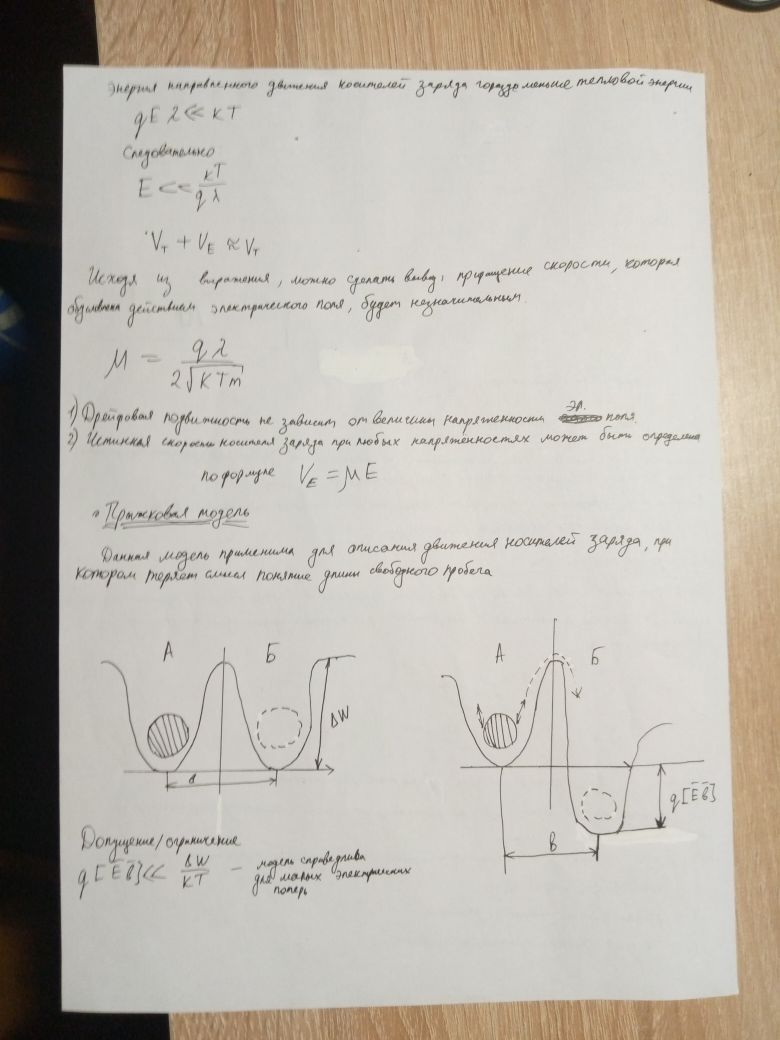 Энергия направленного движения носителей заряда гораздо меньше тепловой энергии
qEλ << кТ
Следовательно
E << кТ/qλ
V_T + V_E ≈ V_T
Исходя из выражения, можно сделать вывод: приращение скорости, которая
обусловлена действием электрического поля, будет незначительным.
μ = qλ / 2√кТm
1) Дрейфовая подвижность не зависит от величины напряженности эл. поля.
2) Истинная скорость носителя заряда при любых напряженностях может быть определена
по формуле V_E = μE
Прыжковая модель
Данная модель применима для описания движения носителей заряда, при
котором теряет смысл понятие длины свободного пробега
А Б
ΔW
в
А Б
q[Ēв̄]
в
Допущение/ограничение
q[Ēв̄] << ΔW/кТ – модель справедлива
для малых электрических
потерь